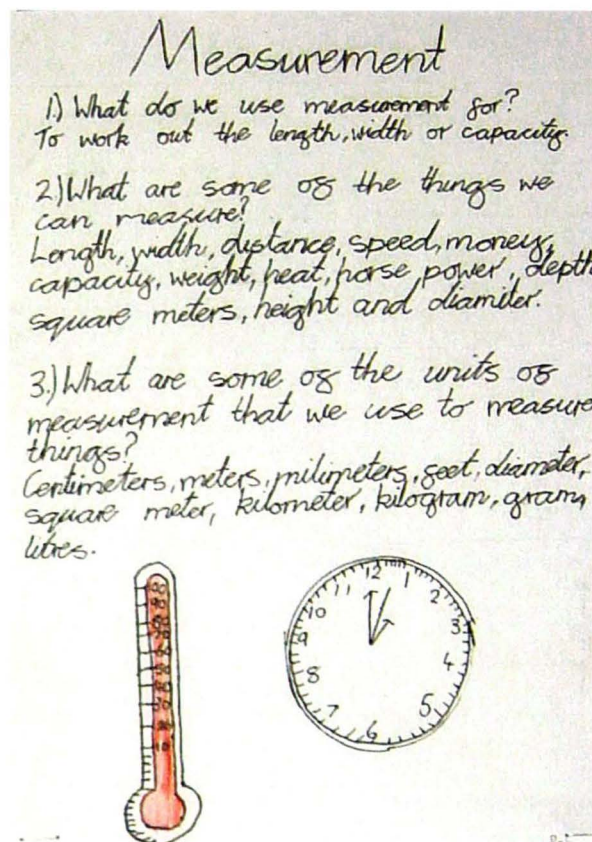 Measurement
1.) What do we use measurement for?
To work out the length, width or capacity.
2.) What are some of the things we
can measure?
Length, width, distance, speed, money,
capacity, weight, heat, horse power, depth
square meters, height and diamiter.
3.) What are some of the units of
measurement that we use to measure
things?
Centimeters, meters, milimeters, feet, diameter,
square meter, kilometer, kilogram, gram,
litres.
12
11 1
10 2
9 3
8 4
7 5
6